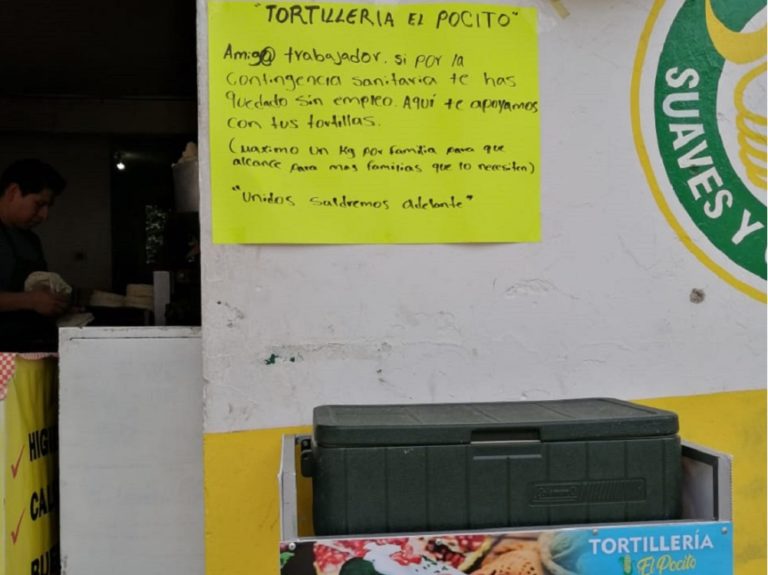 "TORTILLERIA EL POCITO"
Amig@ trabajador. si por la
contingencia sanitaria te has
quedado sin empleo. AQUÍ te apoyamos
con tus tortillas.
(maximo un Kg por familia para que
alcance para mas familias que lo necesiten)
"Unidos saldremos adelante"
SUAVES Y
HIG
CAL
BUE
TORTILLERÍA
El Pocito